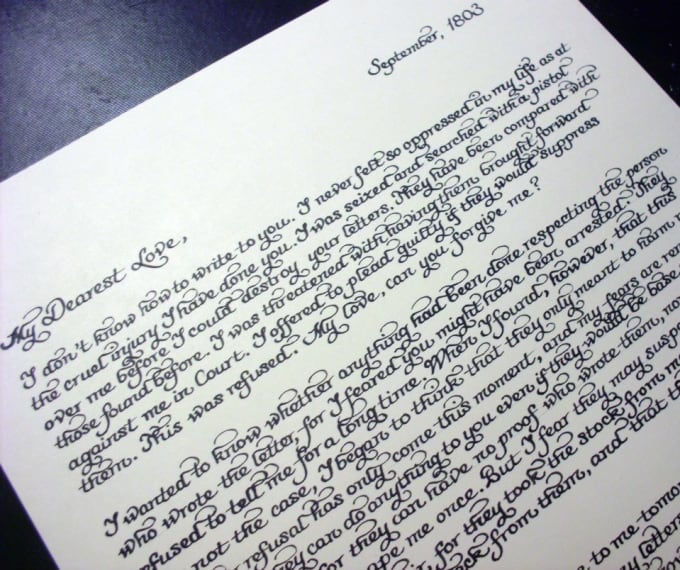 September, 1803
My Dearest Love,
I don't know how to write to you. I never felt so oppressed in my life as at
the cruel injury I have done you. I was seized and searched with a pistol
over me before I could destroy your letters. They have been compared with
those found before. I was threatened with having them brought forward
against me in Court. I offered to plead guilty if they would suppress
them. This was refused. My love, can you forgive me?
I wanted to know whether anything had been done respecting the person
who wrote the letter, for I feared you might have been arrested. They
refused to tell me for a long time. When I found, however, that this
not the case, I began to think that they only meant to harm
refusal has only come this moment, and my fears are
they can do anything to you even if they would be base
for they can have no proof who wrote them,
me once. But I fear they may
for they took the stock from
from them, and that
to me
my letters